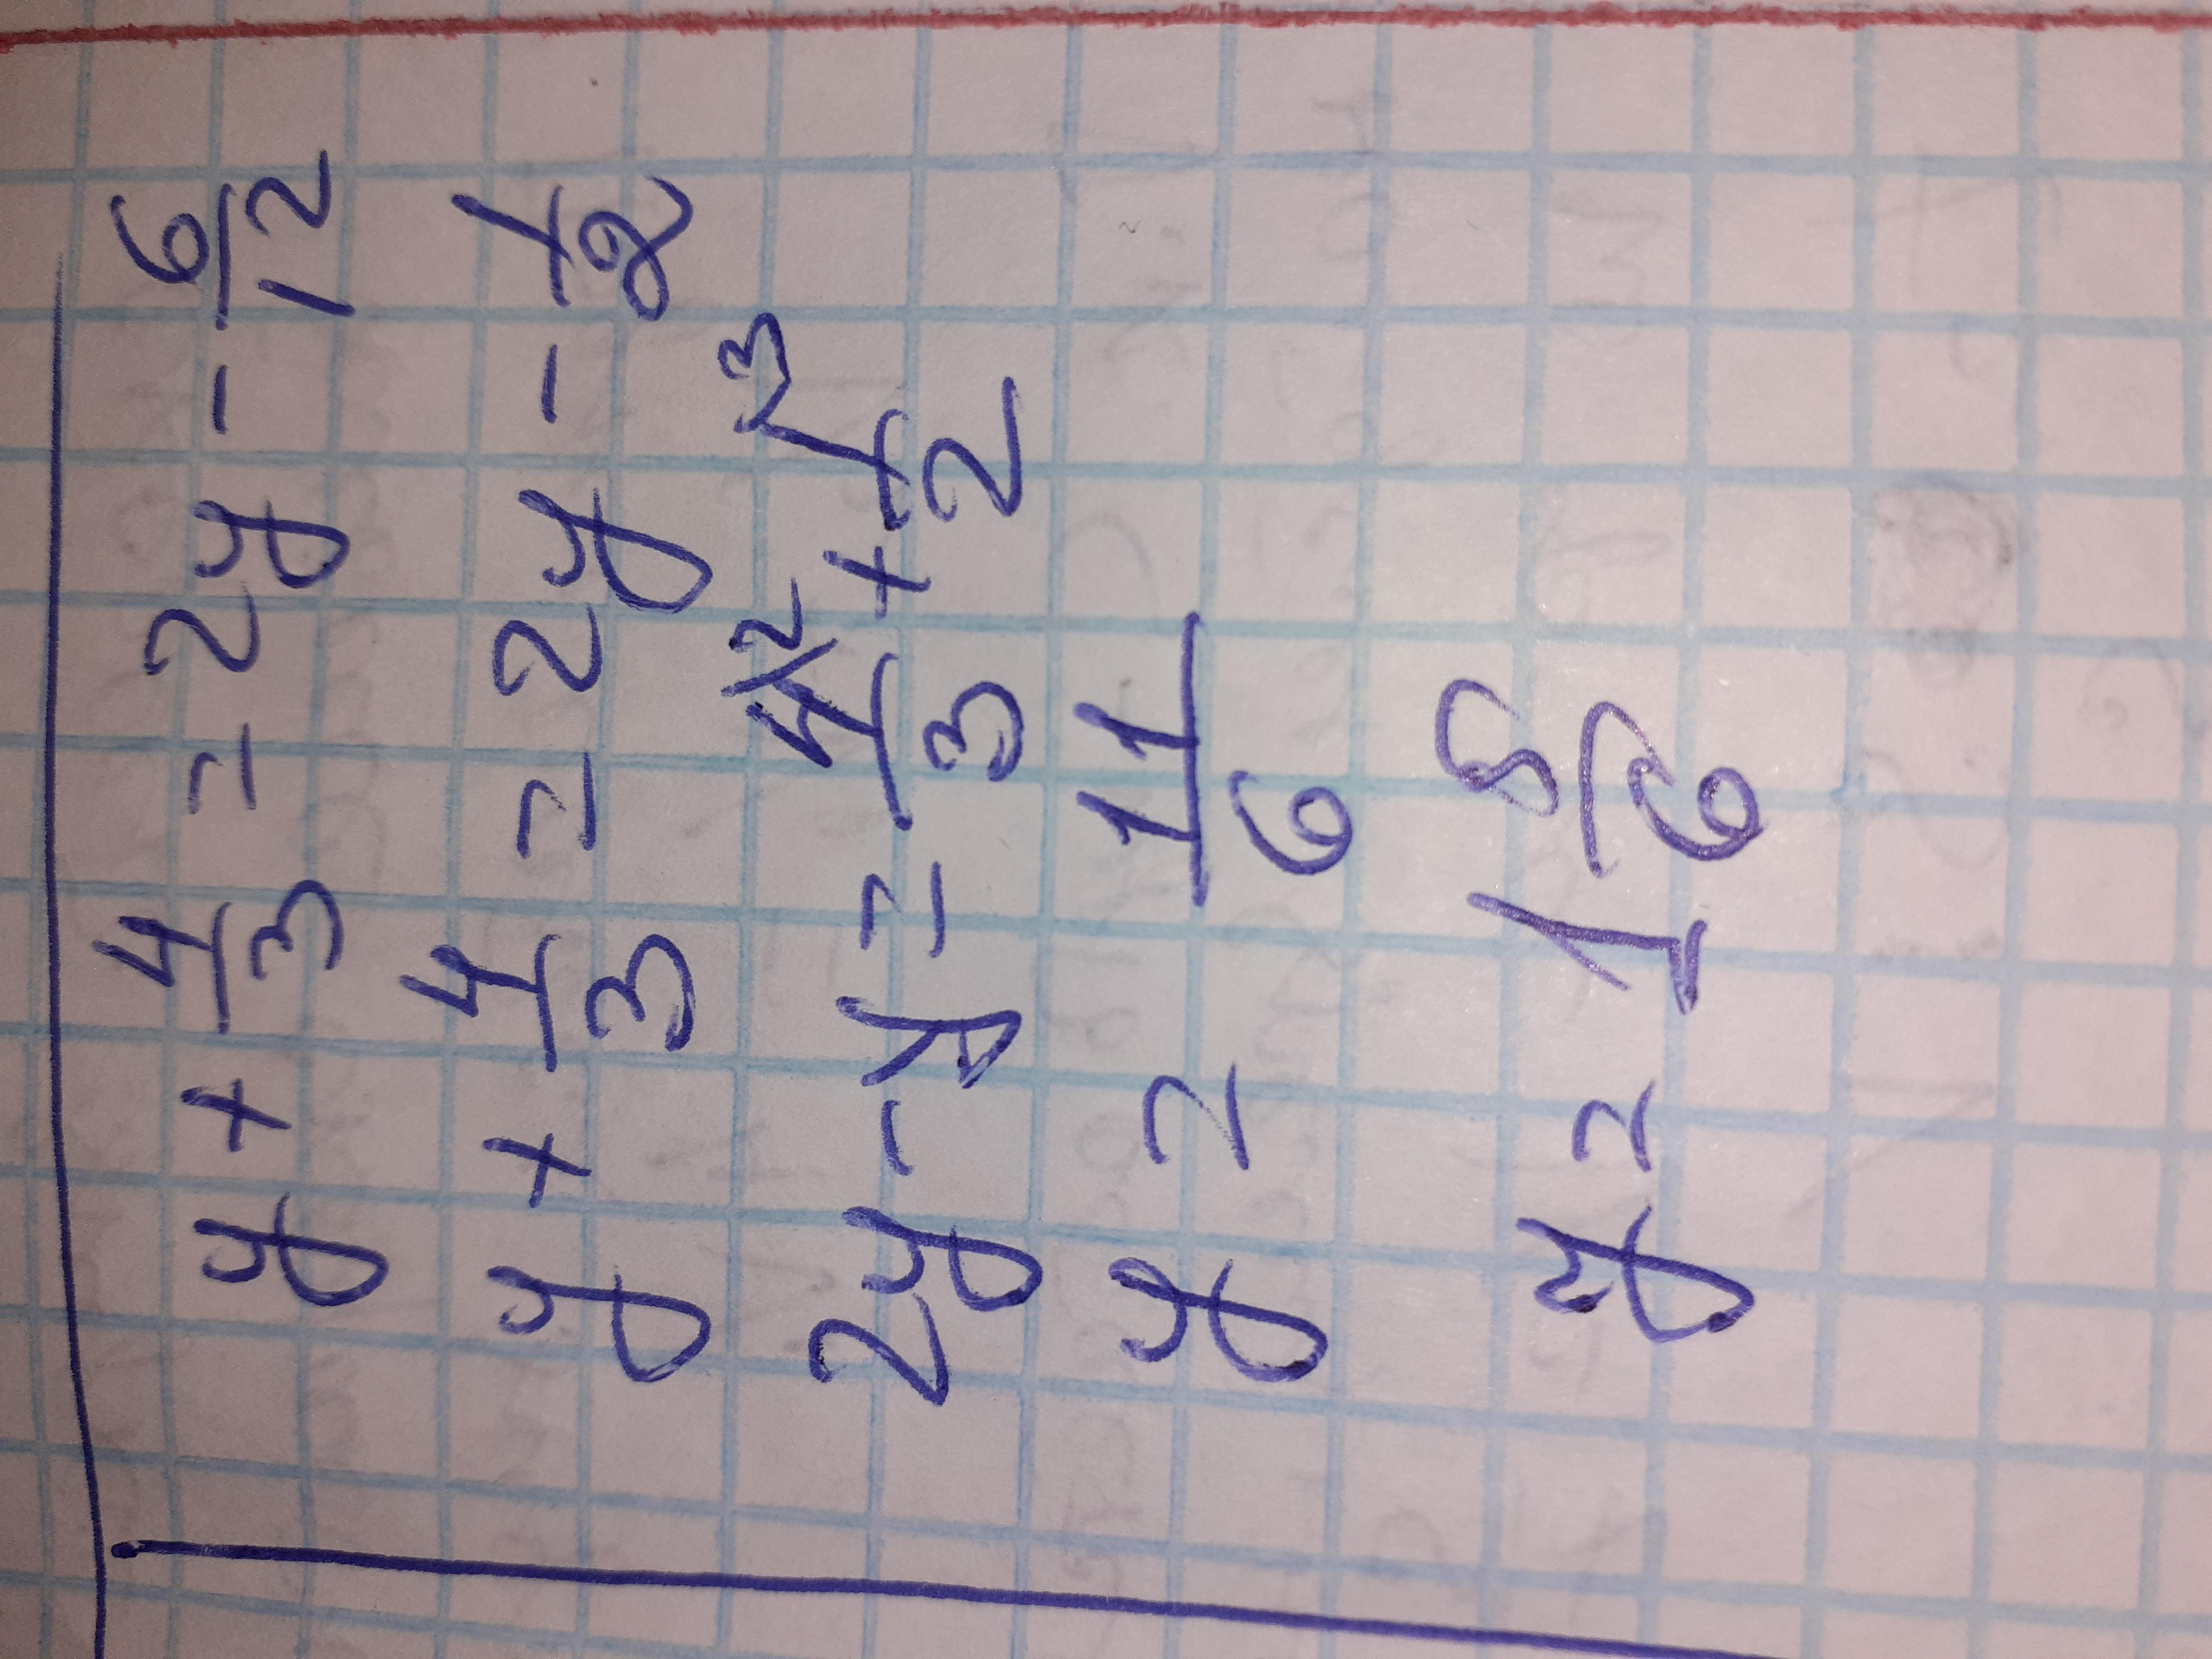 y + 4/3 = 2y - 6/12
y + 4/3 = 2y - 1/2
2y - y = 4/3 \2 + 1/2 \3
y = 11/6
y = 1 5/6